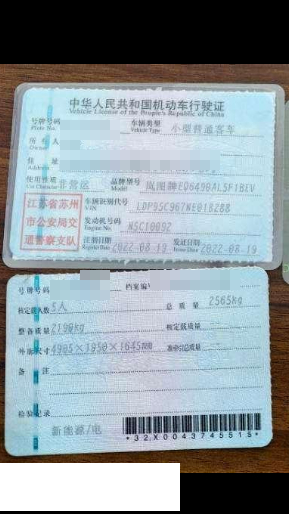 中华人民共和国机动车行驶证
Vehicle License of the People's Republic of China
号牌号码 Plate No. 车辆类型 Vehicle Type 小型普通客车
所有人 Owner
住址 Address
使用性质 Use Character 非营运 品牌型号 Model 岚图牌EQ6490AL5F1BEV
江苏省苏州市公安局交通警察支队
车辆识别代号 VIN LDP95C967NE018288
发动机号码 Engine No.
注册日期 Register Date 2022-08-19 发证日期 Issue Date 2022-08-19
号牌号码 档案编
核定载人数 5人 总质量 2565kg
整备质量 2190kg 核定载质量
外廓尺寸 4905×1950×1645mm
备注
检验记录
新能源/电